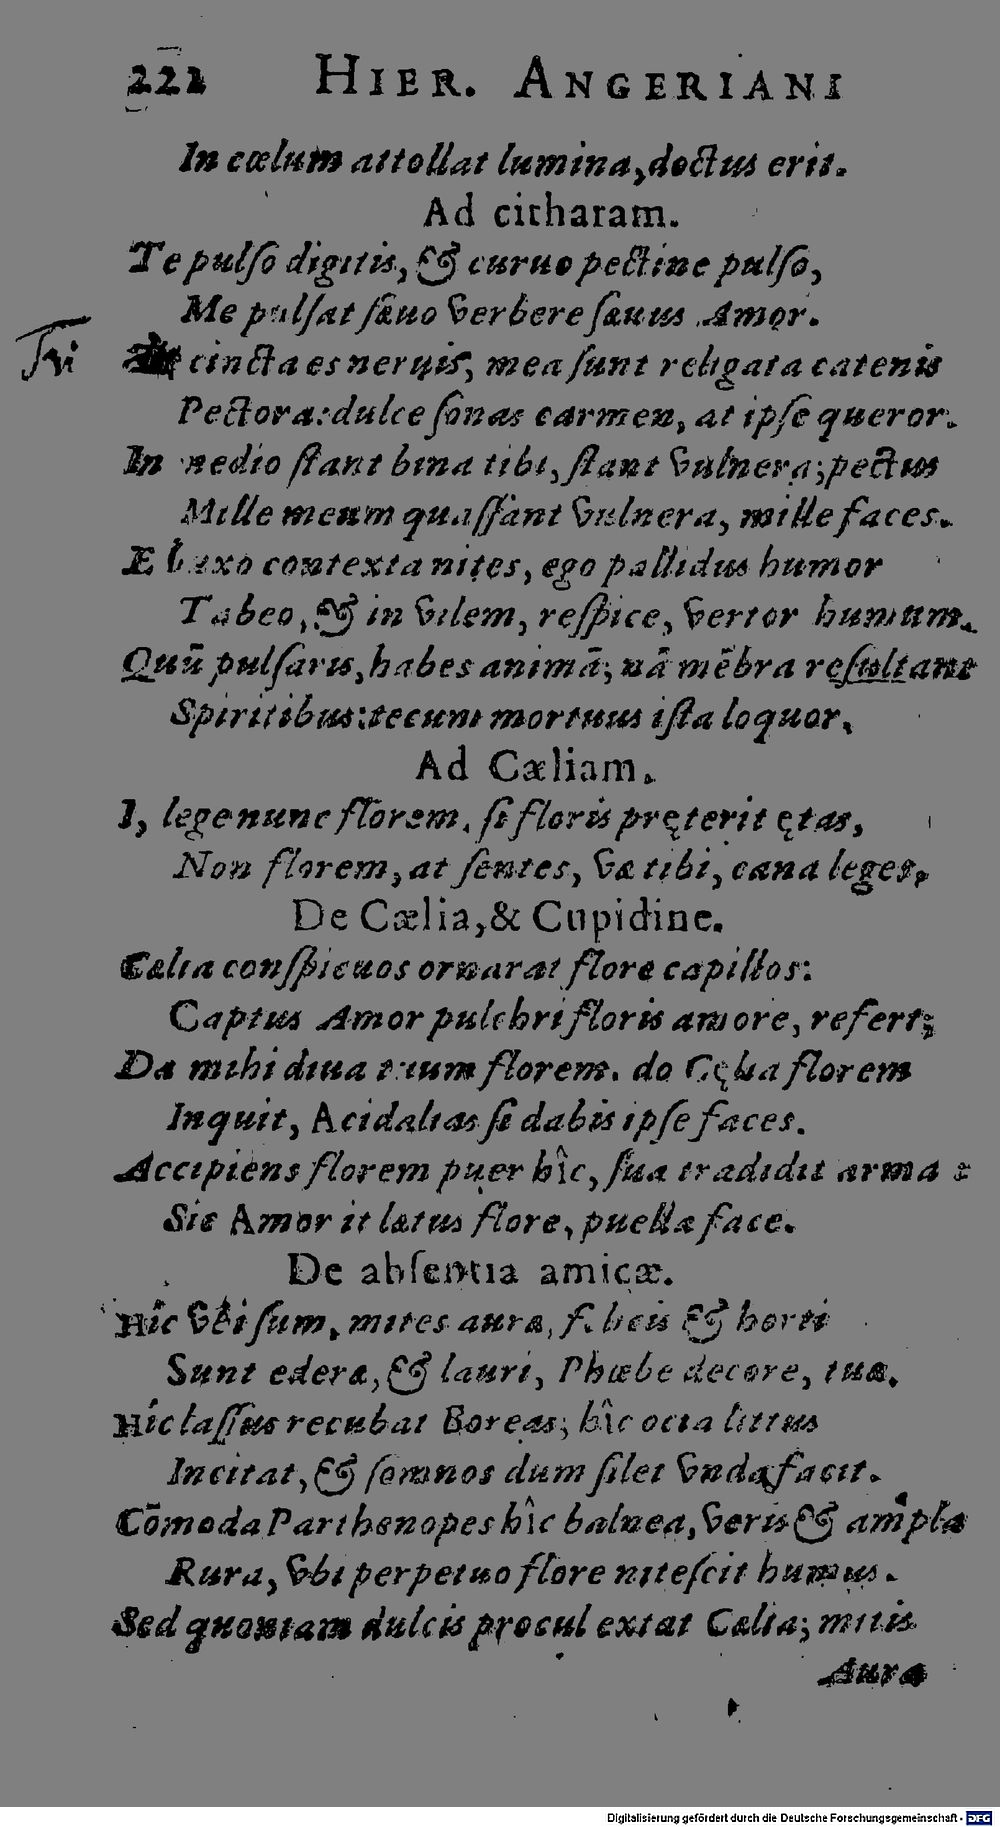 222 HIER. ANGERIANI
In cælum attollat lumina, doctus erit.
Ad citharam.
Te pulſo digitis, & curuo pectine pulſo,
Me pulſat ſæuo verbere ſæuus Amor.
Tri cincta es neruis, mea ſunt religata catenis
Pectora: dulce ſonas carmen, at ipſe queror.
In medio ſtant bina tibi, ſtant vulnera; pectus
Mille meum quaſſant vulnera, mille faces.
E buxo contexta nites, ego pallidus humor
Tabeo, & in vilem, reſpice, vertor humum.
Quū pulſaris, habes animā; nā mēbra reſultant
Spiritibus: tecum mortuus iſta loquor.
Ad Cæliam.
I, lege nunc florem, ſi floris pręterit ętas,
Non florem, at ſentes, væ tibi, cana leges.
De Cælia, & Cupidine.
Cælia conſpicuos ornarat flore capillos:
Captus Amor pulchri floris amore, refert;
Da mihi diua tuum florem. do Cęlia florem
Inquit, Acidalias ſi dabis ipſe faces.
Accipiens florem puer hîc, ſua tradidit arma:
Sic Amor it lætus flore, puella face.
De abſentia amicæ.
Hîc vbi ſum, mites auræ, felicis & horti
Sunt ederæ, & lauri, Phœbe decore, tuæ.
Hîc laſſus recubat Boreas; hîc ocia littus
Incitat, & ſomnos dum ſilet vnda facit.
Cōmoda Parthenopes hîc balnea, veris & ampla
Rura, vbi perpetuo flore niteſcit humus.
Sed quoniam dulcis procul extat Cælia; mitis
Aura
Digitalisierung gefördert durch die Deutsche Forschungsgemeinschaft - DFG